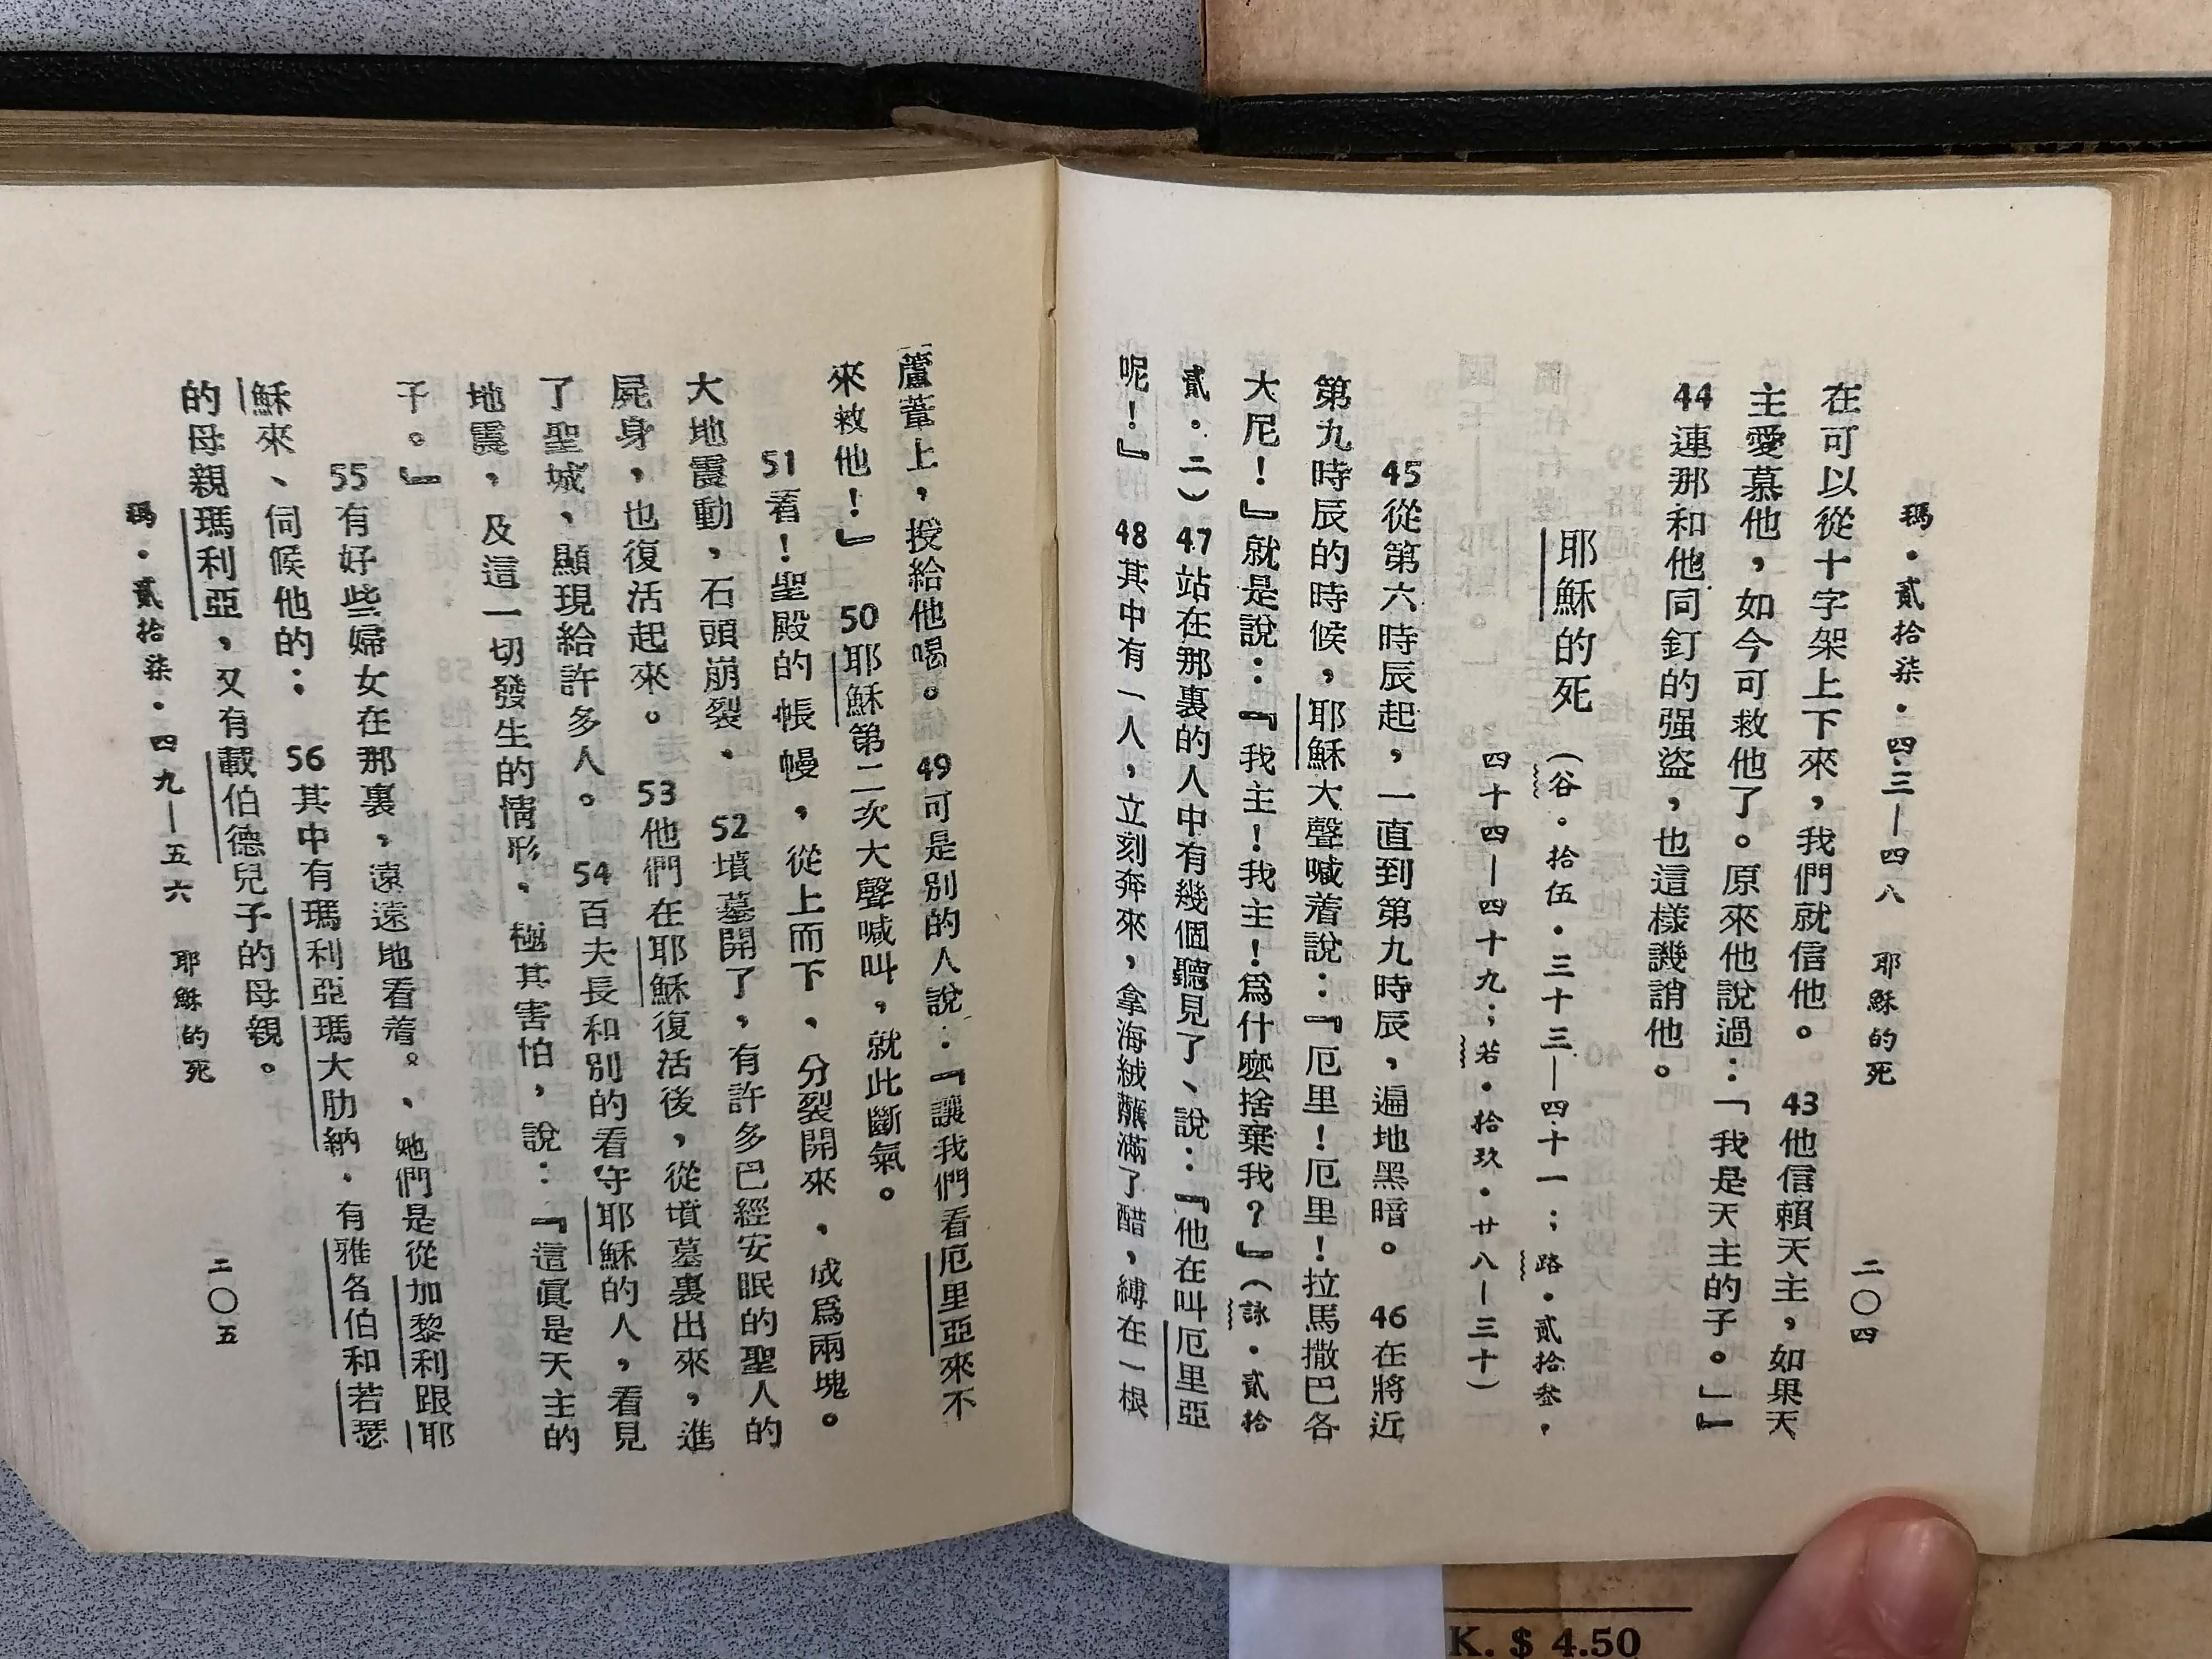 瑪・貳拾柒・四三—四八　耶穌的死　二〇四
在可以從十字架上下來，我們就信他。　43他信賴天主，如果天
主愛慕他，如今可救他了。原來他說過：「我是天主的子。」』
44連那和他同釘的强盜，也這樣譏誚他。
耶穌的死　（谷・拾伍・三十三—四十一；路・貳拾叁，
四十四—四十九；若・拾玖・廿八—三十）
45從第六時辰起，一直到第九時辰，遍地黑暗。　46在將近
第九時辰的時候，耶穌大聲喊着說：『厄里！厄里！拉馬撒巴各
大尼！』就是說：『我主！我主！爲什麼捨棄我？』（詠・貳拾
貳・二）47站在那裏的人中有幾個聽見了、說：『他在叫厄里亞
呢！』　48其中有一人，立刻奔來，拿海絨蘸滿了醋，縛在一根
蘆葦上，授給他喝。　49可是別的人說：『讓我們看厄里亞來不
來救他！』　50耶穌第二次大聲喊叫，就此斷氣。
51看！聖殿的帳幔，從上而下、分裂開來，成爲兩塊。
大地震動，石頭崩裂、　52墳墓開了，有許多巴經安眠的聖人的
屍身，也復活起來。　53他們在耶穌復活後，從墳墓裏出來，進
了聖城、顯現給許多人。　54百夫長和別的看守耶穌的人，看見
地震，及這一切發生的情形、極其害怕，說：『這眞是天主的
子。』
55有好些婦女在那裏，遠遠地看着。、她們是從加黎利跟耶
穌來、伺候他的；　56其中有瑪利亞瑪大肋納，有雅各伯和若瑟
的母親瑪利亞，又有載伯德兒子的母親。
瑪・貳拾柒・四九—五六　耶穌的死　二〇五
K. $ 4.50